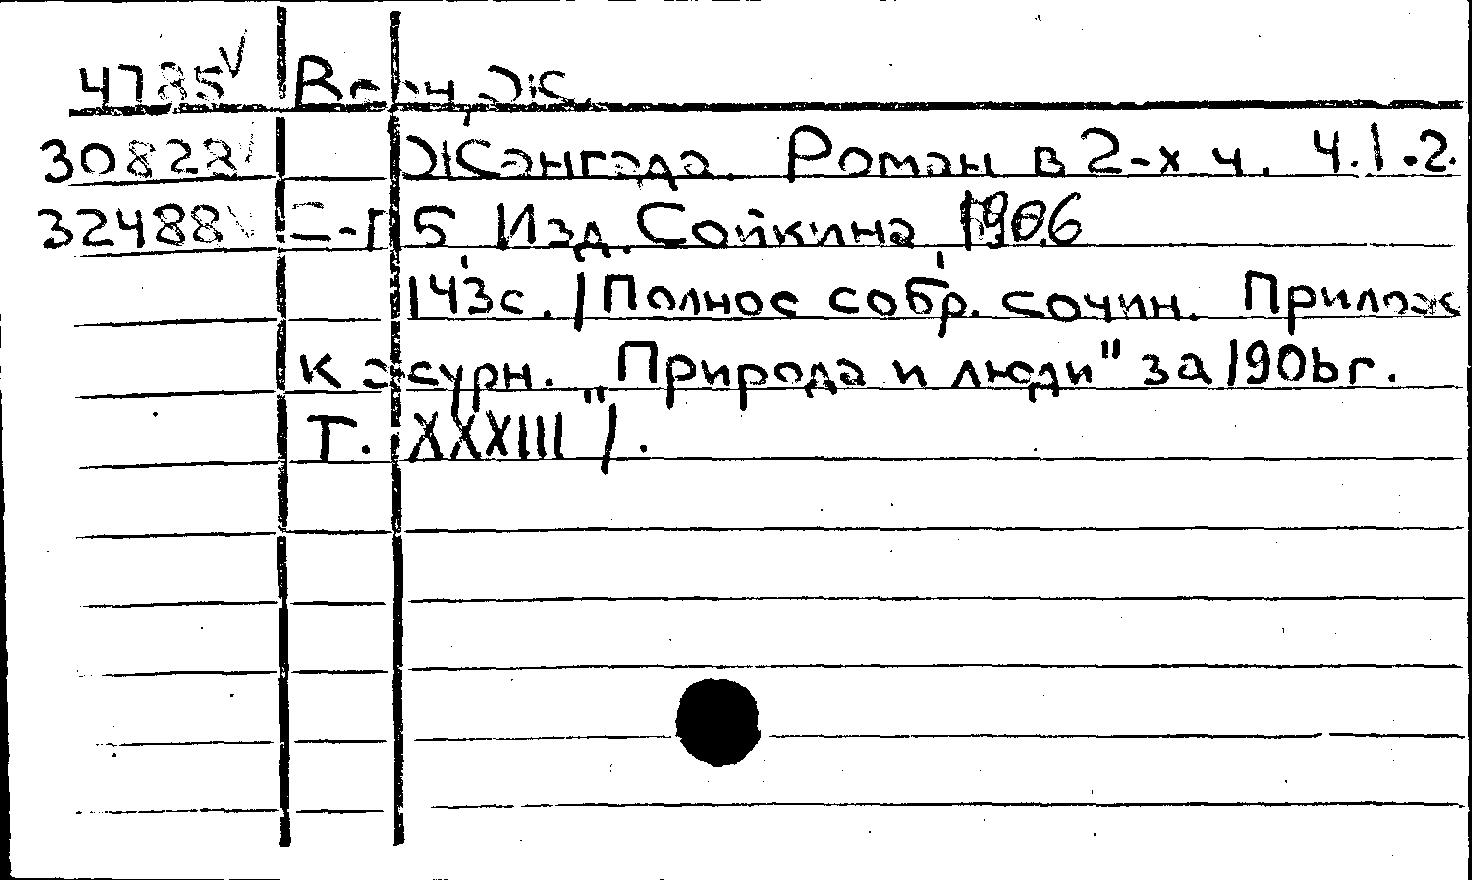 4785 V Верн, Ж.
30828 V Жангада. Роман в 2-х ч. Ч.1.-2.
32488 V С-Пб Изд. Сойкина 1906
143с. / Полное собр. сочин. Прилож
к журн. "Природа и люди" за 1906г.
Т. XXXIII /.